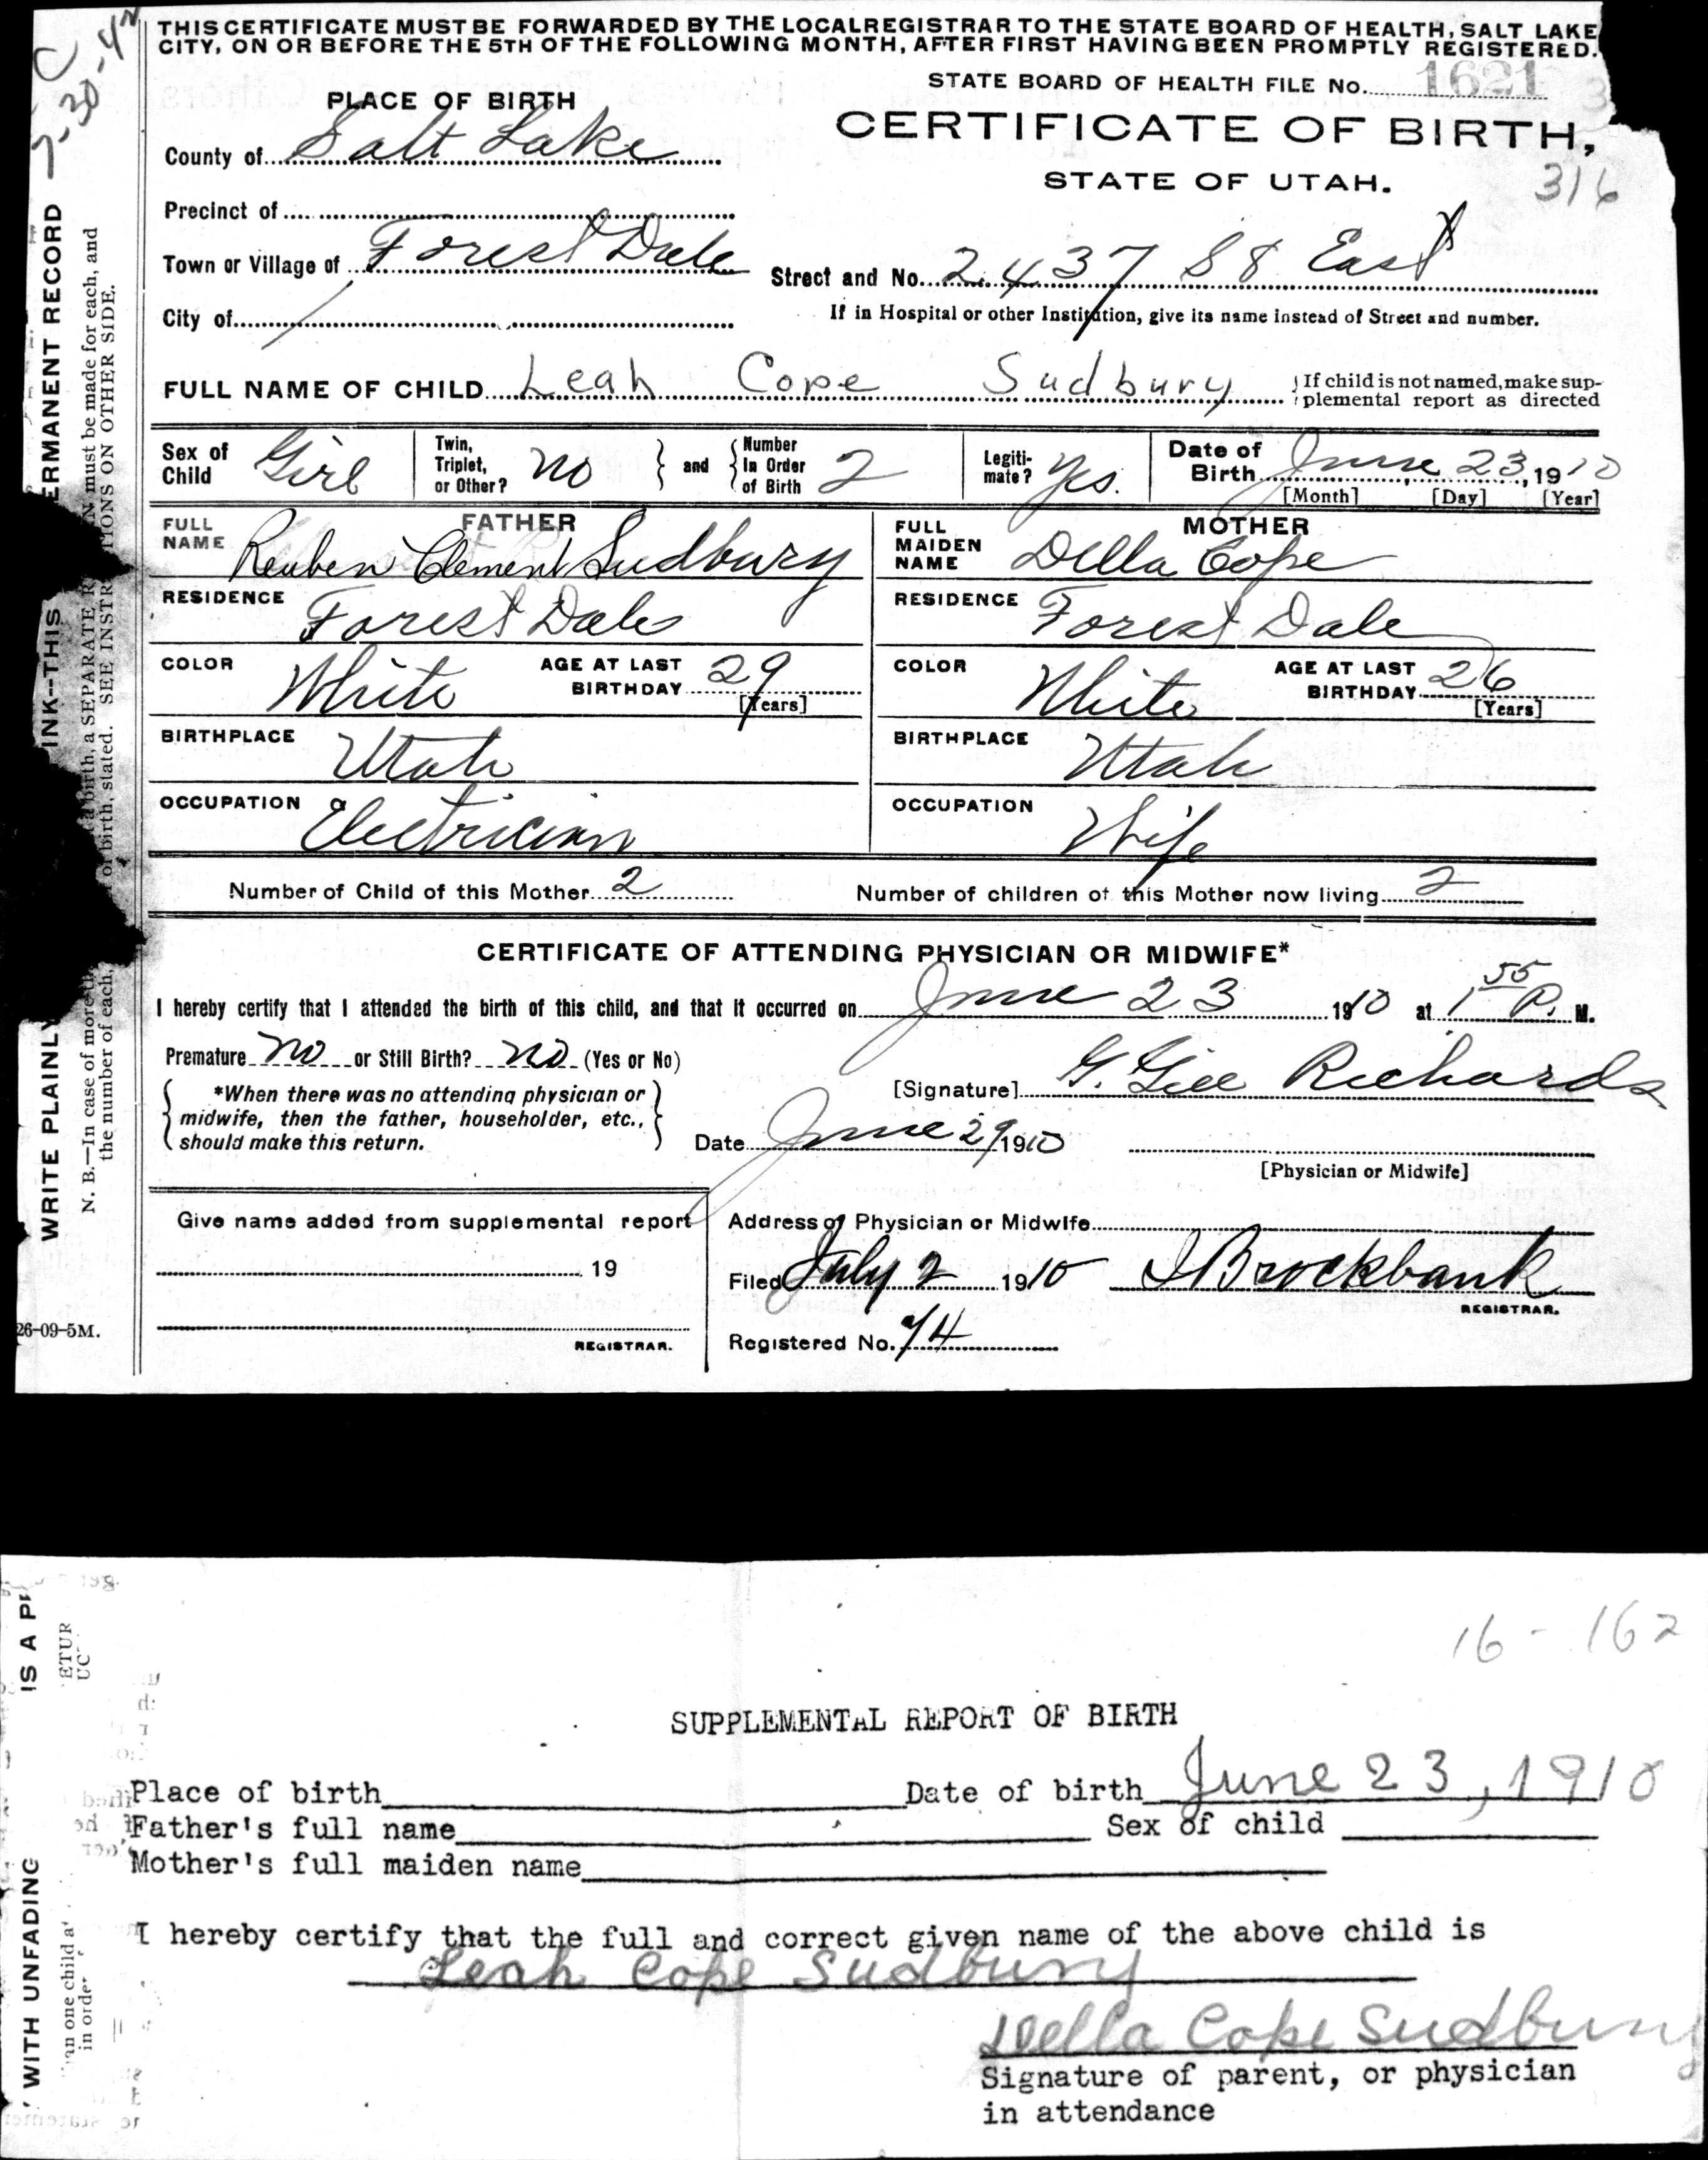 THIS CERTIFICATE MUST BE FORWARDED BY THE LOCAL REGISTRAR TO THE STATE BOARD OF HEALTH, SALT LAKE
CITY, ON OR BEFORE THE 5TH OF THE FOLLOWING MONTH, AFTER FIRST HAVING BEEN PROMPTLY REGISTERED.
STATE BOARD OF HEALTH FILE No. 1621
PLACE OF BIRTH
CERTIFICATE OF BIRTH,
STATE OF UTAH.
316
County of Salt Lake
Precinct of
Town or Village of Forest Dale
Street and No. 2437 S 8 East
City of
If in Hospital or other Institution, give its name instead of Street and number.
FULL NAME OF CHILD Leah Cope Sudbury
If child is not named, make sup-
plemental report as directed
Sex of Child Girl
Twin, Triplet, or Other? no
and Number In Order of Birth 2
Legiti-mate? Yes.
Date of Birth June 23, 1910
[Month] [Day] [Year]
FATHER
FULL NAME Reuben Clement Sudbury
RESIDENCE Forest Dale
COLOR White AGE AT LAST BIRTHDAY 29 [Years]
BIRTHPLACE Utah
OCCUPATION Electrician
MOTHER
FULL MAIDEN NAME Della Cope
RESIDENCE Forest Dale
COLOR White AGE AT LAST BIRTHDAY 26 [Years]
BIRTHPLACE Utah
OCCUPATION Wife
Number of Child of this Mother 2 Number of children of this Mother now living 2
CERTIFICATE OF ATTENDING PHYSICIAN OR MIDWIFE*
I hereby certify that I attended the birth of this child, and that it occurred on June 23 1910 at 1 55 P. M.
Premature no or Still Birth? no (Yes or No)
*When there was no attending physician or
midwife, then the father, householder, etc.,
should make this return.
[Signature] G. Gill Richards
Date June 29 1910
[Physician or Midwife]
Give name added from supplemental report
19
REGISTRAR.
Address of Physician or Midwife
Filed July 2 1910 I Brockbank
REGISTRAR.
Registered No. 74
26-09-5M.
WRITE PLAINLY
INK--THIS
ERMANENT RECORD
N. B.—In case of more
birth, a SEPARATE
must be made for each, and
the number of each,
of birth, stated. SEE INSTR
TIONS ON OTHER SIDE.
7-30-42
16-162
SUPPLEMENTAL REPORT OF BIRTH
Place of birth Date of birth June 23, 1910
Father's full name Sex of child
Mother's full maiden name
I hereby certify that the full and correct given name of the above child is
Leah Cope Sudbury
Della Cope Sudbury
Signature of parent, or physician
in attendance
WITH UNFADING
IS A P
an one child a
in order
ETUR
UC